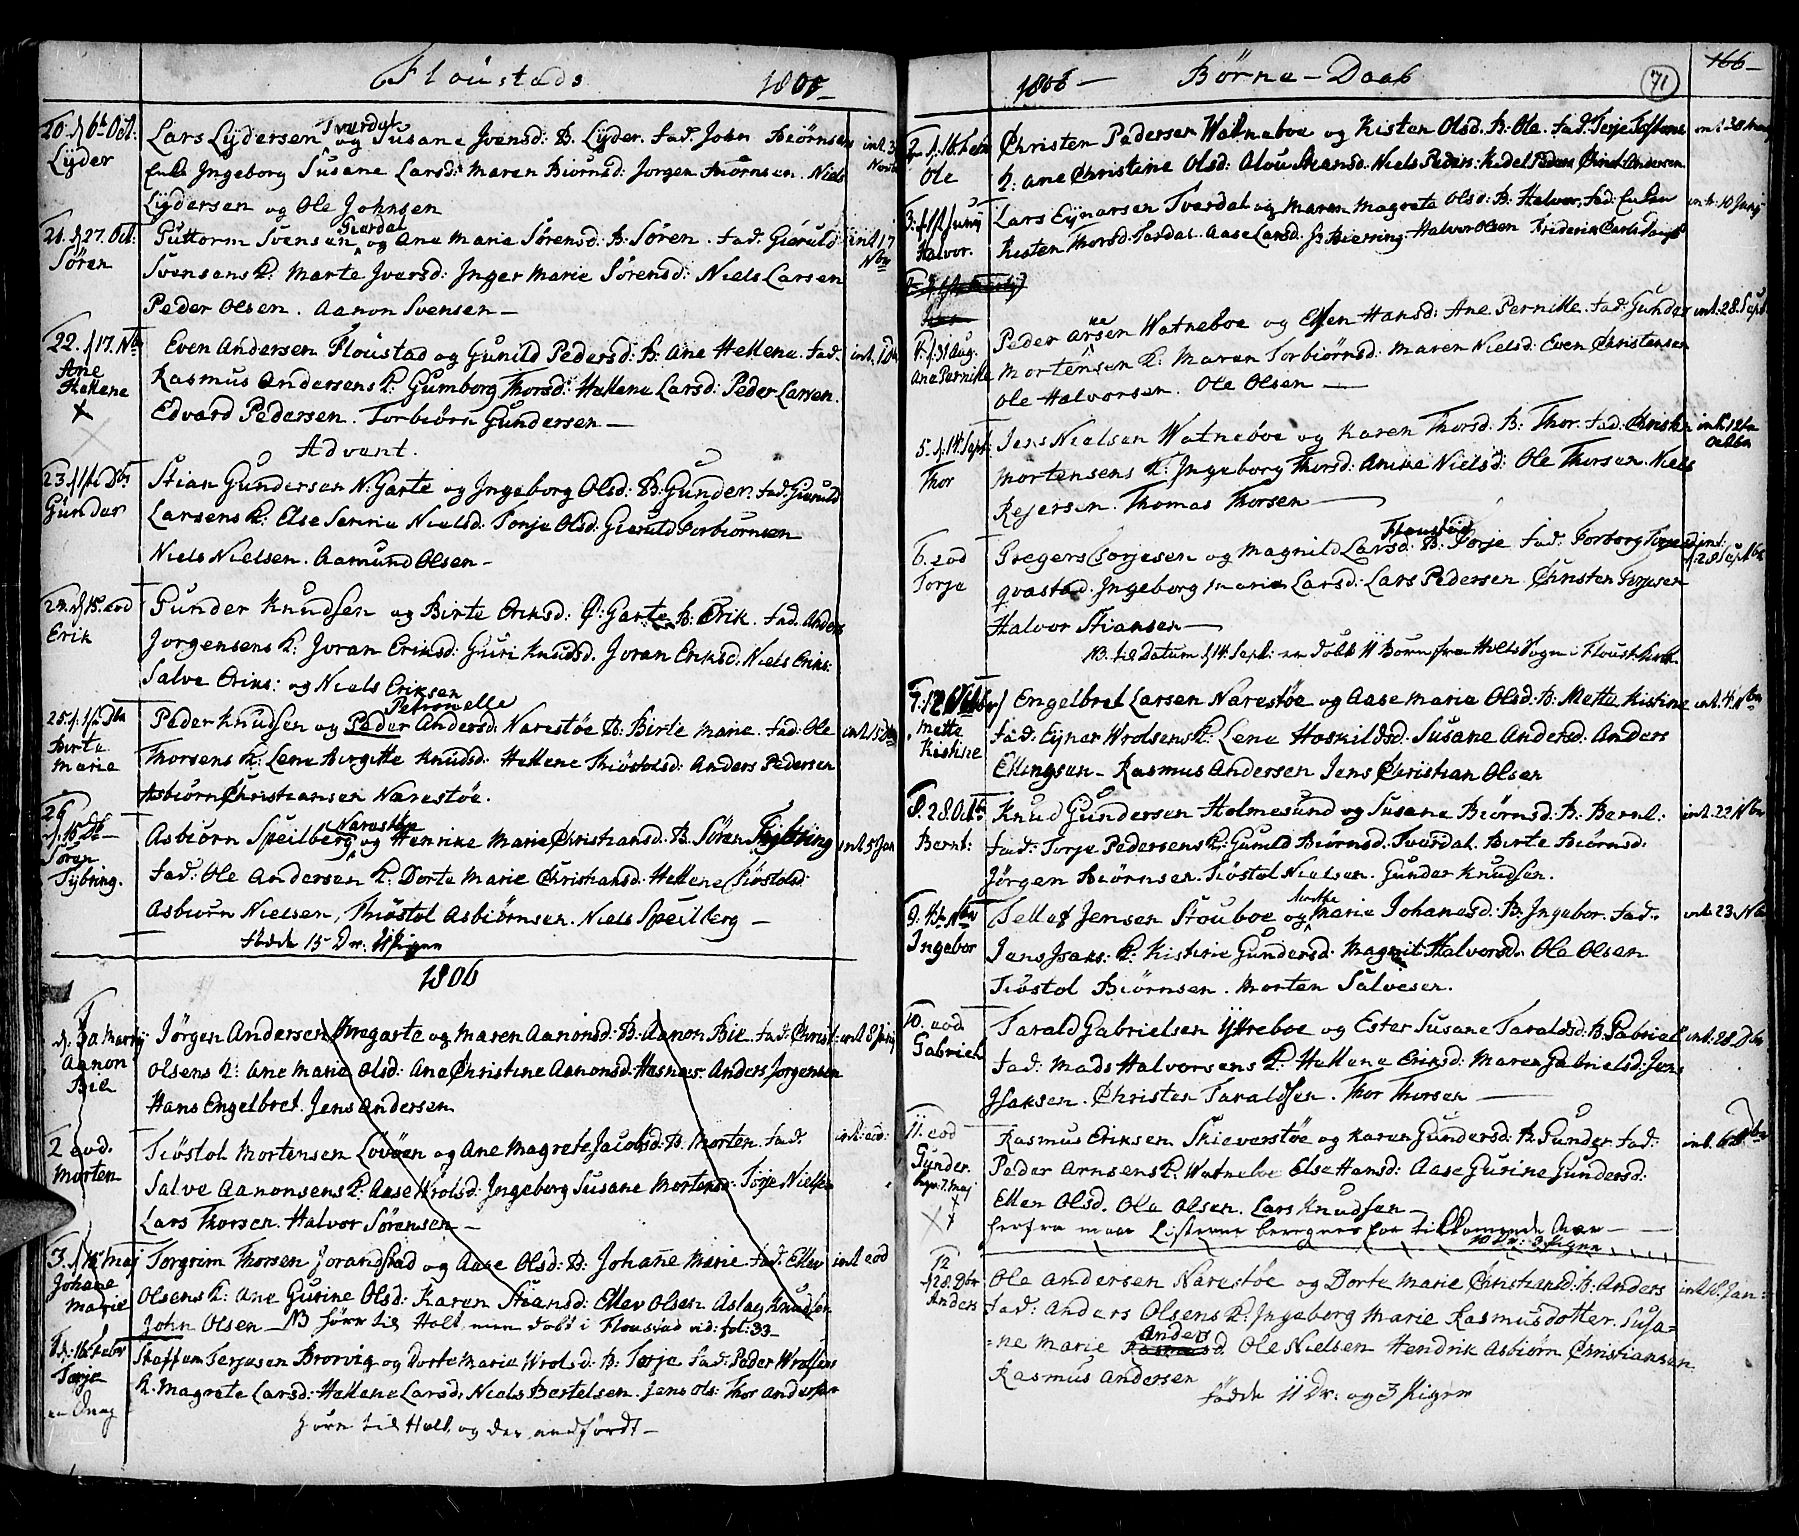 Floustads 1805
20. d 6t Oct: Lyder
Lars Lydersen Tverdal og Susane Ivensd: B. Lyder. fad. John Biörnsen
Enke Ingeborg Susane Larsd: Maren Biörnsd: Jorgen Biörnsen. Niels
Lydersen og Ole Johnsen
int. 3
21. d 27. Oct: Søren
Guttorm Svensen Gierdal og Ane Marie Sørensd: B. Søren. fad. Gieruld
Svensens K: Marte Ivarsd: Inger Marie Sørensd: Niels Larsen
Peder Olsen. Aanon Svensen —
int. 17 Nbr
22. d 17. Nbr Ane Hellene
Even Andersen Floustad og Gunild Pedersd: B. Ane Hellene. fad.
Rasmus Andersens K: Gumborg Thorsd: Hellene Larsd: Peder Larsen.
Edvard Pedersen. Torbiørn Gundersen —
Advent.
23. d 1ste Dbr Gunder
Stian Gundersen N. Garte og Ingeborg Olsd: B: Gunder. fad. Gieruld
Larsens K: Else Serine Nielsd: Tonje Olsd: Gieruld Torbiörnsen
Niels Nielsen. Aamund Olsen —
24. d 15. eod Erik
Gunder Knudsen og Birte Eriksd: Garte B: Erik. fad. Anders
Jorgensens K: Joran Eriksd: Guri Knudsd. Joran Eriksd: Niels Eriks:
Salve Eriks: og Niels Eriksen
25. d. 1ste Dbr Birte Marie
Peder Knudsen og Peder Petronelle Andersd: Narestøe B: Birte Marie. fad: Ole
Thorsens K: Lene Birgitte Knudsd: Hellene Thiöstolsd: Anders Pedersen
Asbiörn Christiansen Narestøe.
int. 15 Dbr
26 d. 15 Db Søren Tybring.
Asbiørn Speilberg Narestøe og Henrike Marie Christiansd: B. Søren Tybring
fad: Ole Andersen K: Dorte Marie Christiansd: Hellene Tiöstolsd:
Asbiørn Nielsen, Thiöstol Asbiörnsen. Niels Speilberg —
int. 5 Jan
fødde 15 Dr. 11 Pigen
1806
1 Aanon Bie
Jørgen Andersen Omegarte og Maren Aanonsd: B: Aanon Bie. fad: Christ:
Olsens K: Ane Marie Olsd: Ane Christine Aanonsd: Hasnæs. Anders Jorgensen
Hans Engelbret. Jens Andersen
int 8 Junij
2 eod. Morten
Tiöstol Mortensen Lovøen og Ane Magrete Jacobsd: B. Morten. fad:
Salve Aanonsens K: Aase Wrolsd: Ingeborg Susane Mortensd: Torje Nielsen
Lars Thorsen. Halvor Sørensen —
int: eod:
3. d 15 Maj Johane Marie
Torgrim Thorsen Jorandstad og Aase Olsd: B: Johane Marie. fad: Ellev
Olsens K: Ane Gurine Olsd: Karen Stiansd: Ellev Olsen. Aslag Knudsen
John Olsen — NB hører til Holt men døbt i Floustad vid: fol: 33 —
int eod
1 d: 16 Febr Terje
Staffen Terjesen Brorvig og Dorte Marie Wrolsd: B: Terje. fad: Peder Wrolsens
K. Magrete Larsd: Hellene Larsd: Niels Bertelsen. Jens Ols: Thor Andersen
hører til Holt og der anførdt —
1806 — Børne-Daab 71 166
2. d. 16 Febr Ole
Christen Pedersen Watneboe og Kisten Olsd. B: Ole. fad: Terje Toftene
K: Ane Christine Olsd: Alou Steansd. Niels Peders: Kedel Peders Christ: Andersen
3. d 1st Junij Halvor.
Lars Eynarsen Tverdal og Maren Magrete Olsd: B. Halvor. fad: Enken
Kisten Thorsd. Tverdal. Aase Larsd. Js Bierring. Halvor Olsen
int: 10 Junij
4. d. 31 Aug. Ane Pernille
Peder Arnesen Watneboe og Ellen Hansd: Ane Pernille. fad: Gunder
Mortensen K: Maren Torbiørnsd: Maren Nielsd: Even Christensen
Ole Halvorsen. Ole Olsen —
int. 28. Sept
5. d. 14. Sept: Thor
Jens Nielsen Watneboe og Karen Thorsd. B: Thor. fad. Christen
Mortensens K: Ingeborg Thorsd: Anine Nielsd: Ole Thorsen. Niels
Rejersen. Thomas Thorsen —
6. eod Torje
Gregers Torjesen og Magnild Larsd: Floustad B: Torje fad. Torborg
qvastad. Ingeborg Marie Larsd: Lars Pedersen Christen Torjesen
Halvor Stiansen —
int: d. 28 Septbr
NB. til Datum d 14 Sept: er døbt 11 Børn fra Holts Sogn i Floust: Kirk
7. Mette Kistine
Engelbret Larsen Narestøe og Aase Marie Olsd: B: Mette Kistine
fad: Eynar Wrolsens K: Lene Hoskildsd: Susane Andersd. Anders
Ellingsen — Rasmus Andersen Jens Christian Olsen
int. 4 Nbr
8. 28. Octb Bernt:
Knud Gundersen Holmesund og Susane Biørnsd: B: Bernt:
fad: Torje Pedersens K: Gunild Biørnsd. Tverdal. Birte Biørnsd:
Jørgen Biørnsen. Tiöstol Nielsen. Gunder Knudsen.
int. 22 Nbr
9. Ingebor
Tellef Jensen Stouboe og Marie Johanesd: B: Ingebor. fad.
Jens Isaks: K: Kistine Gundersd: Magnit Halvorsd. Ole Olsen
Tiöstol Biørnsen. Morten Salvesen.
int. 23. Nb
10. eod Gabriel
Tarald Gabrielsen Yttreboe og Ester Susane Taraldsd: B. Gabriel
fad: Mads Halvorsens K: Hellene Eriksd: Maren Gabrielsd: Jens
Isaksen. Christen Taraldsen. Thor Thorsen —
int: 28. Dbr
11. eod Gunder.
Rasmus Eriksen Skieverstøe og Karen Gundersd: B. Gunder. fad:
Peder Arnsens K. Watneboe Else Hansd: Aase Gurine Gundersd:
Ellen Olsd. Ole Olsen. Lars Knudsen —
herfra maae Listerne beregnes for tilkommende Aar —
10 Dr: 3 Pigen
12 d 28. Dbr Anders
Ole Andersen Narestøe og Dorte Marie Christiansd: B: Anders
fad: Anders Olsens K: Ingeborg Marie Rasmusdotter. Susa=
=ne Marie Anders Rasmusd. Ole Nielsen Hendrik Asbiørn Christiansen
Rasmus Andersen
fødde 11 Dr: og 3 Pigen